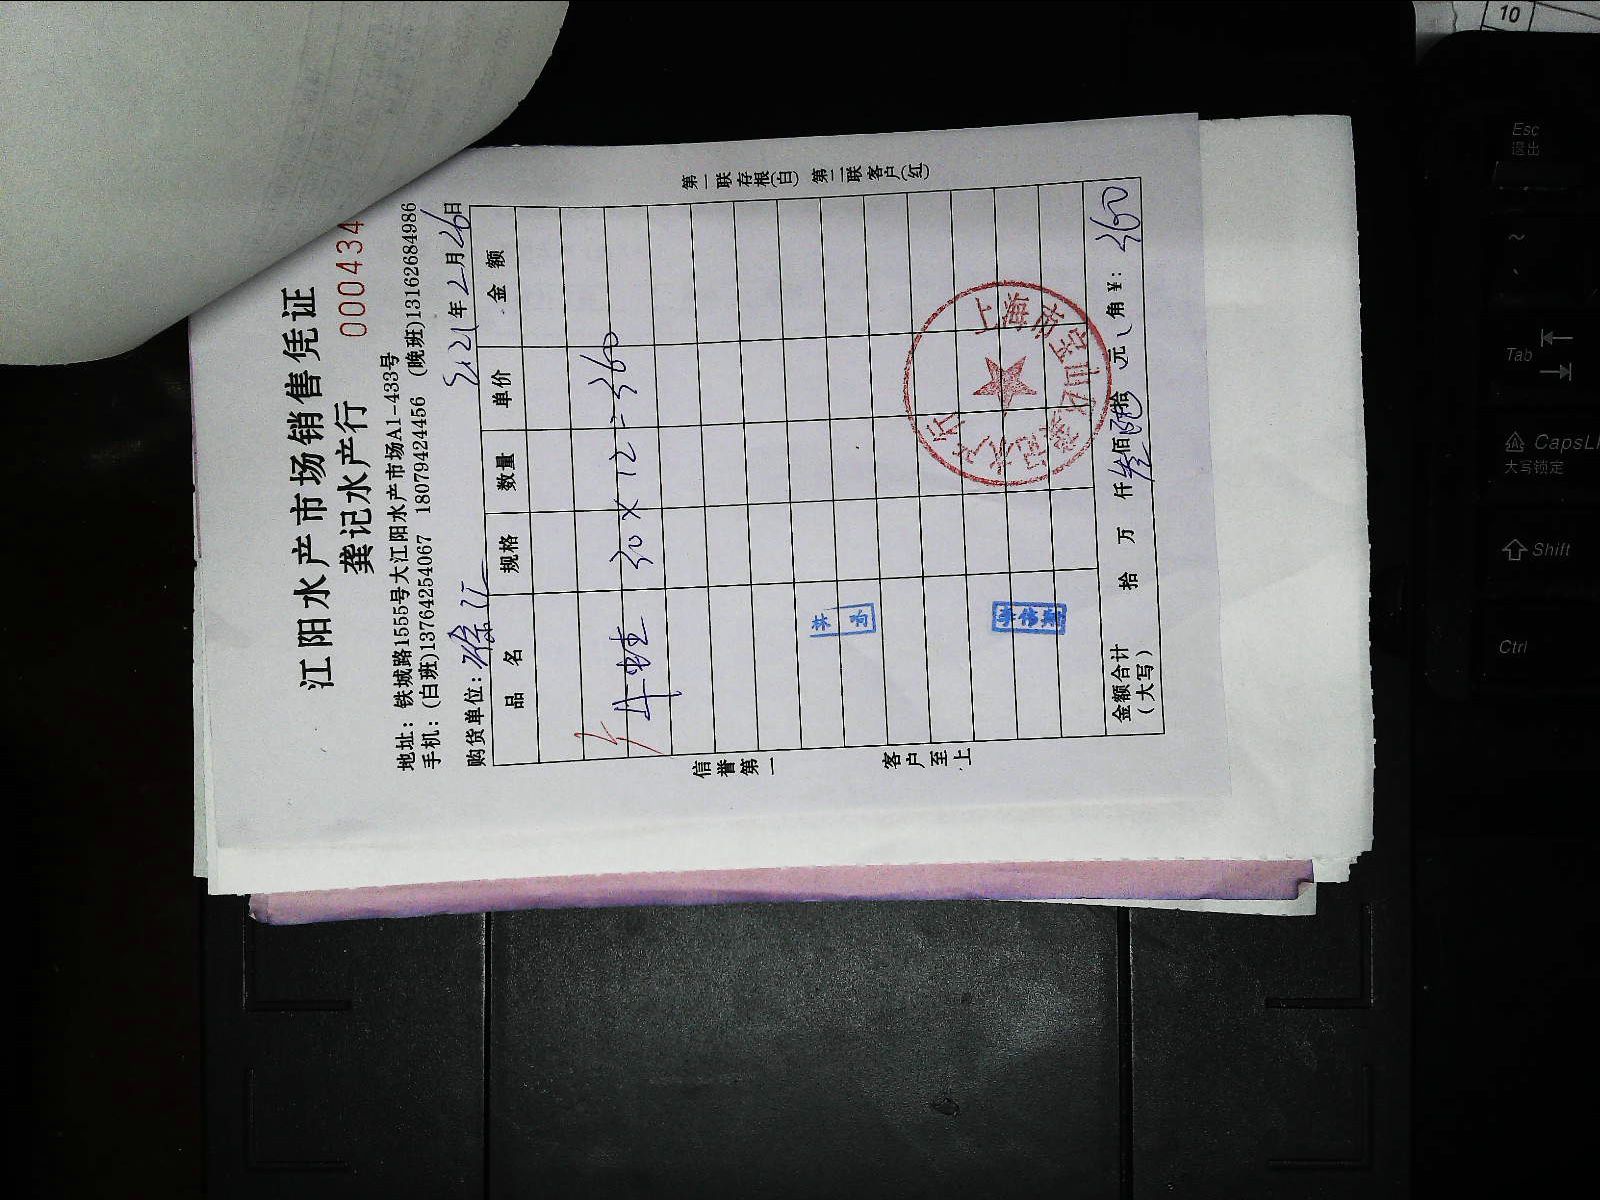 江阳水产市场销售凭证
龚记水产行
000434
地址：铁城路1555号大江阳水产市场A1-433号
手机：(白班)13764254067 18079424456 (晚班)13162684986
购货单位：徐汇
2021年2月26日
品 名 规格 数量 单价 金 额
牛蛙 30×12=360
金额合计(大写) 拾 万 仟 叁佰陆拾 元 角 ¥：360
第一联存根(白) 第二联客户(红)
信誉第一
客户至上
上海市宝山区龚记水产行
10
Esc
退出
~
Tab
CapsL
大写锁定
Shift
Ctrl